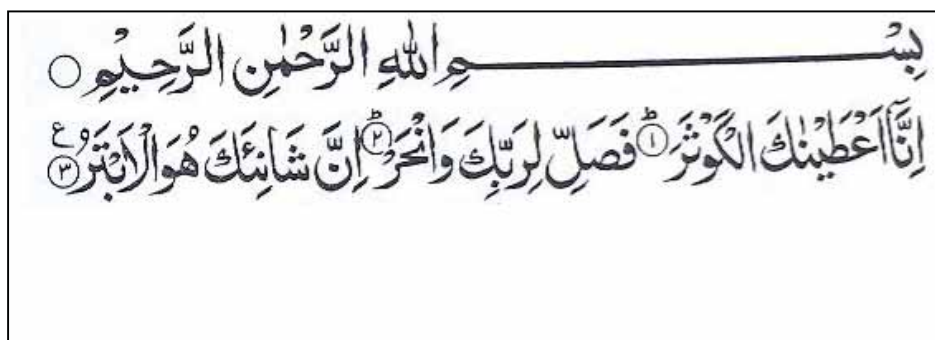 بِسْمِ اللهِ الرَّحْمٰنِ الرَّحِيْمِ ○
اِنَّآ اَعْطَيْنٰكَ الْكَوْثَرَ ؕ﴿۱﴾ فَصَلِّ لِرَبِّكَ وَانْحَرْ ؕ﴿۲﴾ اِنَّ شَانِئَكَ هُوَ الْاَبْتَرُ ﴿۳﴾ ع